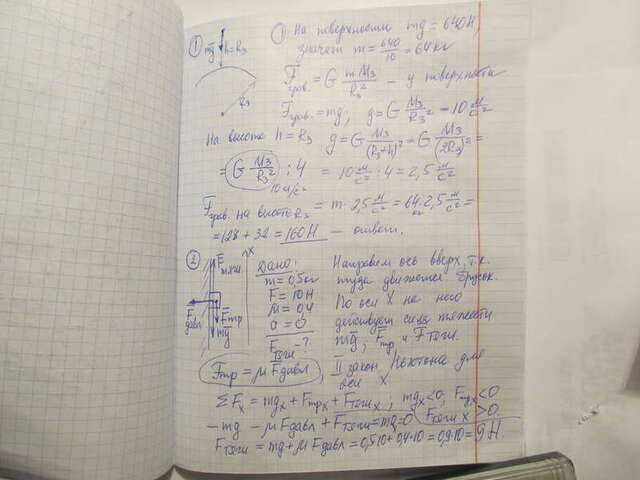 ① mg h=R₃
① На поверхности mg = 640 Н,
значит m = 640/10 = 64 кг
R₃
F грав. = G mM₃/R₃² – у поверхности
F грав. = mg, g = G M₃/R₃² = 10 м/с²
На высоте h = R₃ g = G M₃/(R₃+h)² = G M₃/(2R₃)² =
= G M₃/R₃² : 4 = 10 м/с² : 4 = 2,5 м/с²
10 м/с²
F грав. на высоте R₃ = m · 2,5 м/с² = 64 кг · 2,5 м/с² =
= 128 + 32 = 160 Н – ответ.
② X
F тяги
F давл
F тр
mg
Дано:
m = 0,5 кг
F = 10 Н
μ = 0,4
a = 0
F тяги – ?
Направим ось вверх, т.к.
туда движется брусок.
По оси X на него
действуют силы тяжести
mg, F тр и F тяги.
F тр = μ F давл, II закон Ньютона для
оси X
ΣFₓ = mgₓ + F трₓ + F тягиₓ; mgₓ<0, F трₓ<0
F тяги X >0.
– mg – μ F давл + F тяги = ma = 0
F тяги = mg + μ F давл = 0,5·10 + 0,4·10 = 0,9·10 = 9 Н.